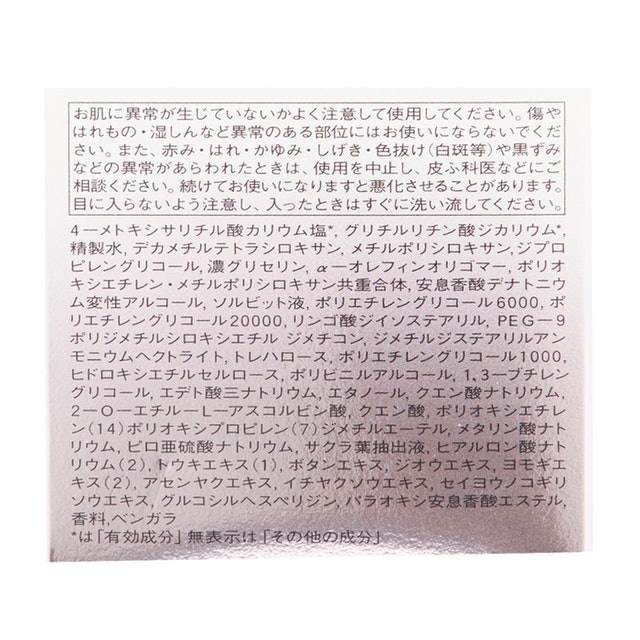 お肌に異常が生じていないかよく注意して使用してください。傷や
はれもの・湿しんなど異常のある部位にはお使いにならないでくだ
さい。また、赤み・はれ・かゆみ・しげき・色抜け(白斑等)や黒ずみ
などの異常があらわれたときは、使用を中止し、皮ふ科医などにご
相談ください。続けてお使いになりますと悪化させることがあります。
目に入らないよう注意し、入ったときはすぐに洗い流してください。
4-メトキシサリチル酸カリウム塩*, グリチルリチン酸ジカリウム*,
精製水, デカメチルテトラシロキサン, メチルポリシロキサン,ジプロ
ピレングリコール, 濃グリセリン, α-オレフィンオリゴマー, ポリオ
キシエチレン・メチルポリシロキサン共重合体, 安息香酸デナトニウ
ム変性アルコール, ソルビット液, ポリエチレングリコール6000, ポ
リエチレングリコール20000, リンゴ酸ジイソステアリル, PEG-9
ポリジメチルシロキシエチル ジメチコン, ジメチルジステアリルアン
モニウムヘクトライト, トレハロース, ポリエチレングリコール1000,
ヒドロキシエチルセルロース, ポリビニルアルコール, 1,3-ブチレン
グリコール, エデト酸三ナトリウム, エタノール, クエン酸ナトリウム,
2-O-エチル-L-アスコルビン酸, クエン酸, ポリオキシエチレ
ン(14)ポリオキシプロピレン(7)ジメチルエーテル, メタリン酸ナト
リウム, ピロ亜硫酸ナトリウム, サクラ葉抽出液, ヒアルロン酸ナト
リウム(2), トウキエキス(1), ボタンエキス, ジオウエキス, ヨモギエ
キス(2), アセンヤクエキス, イチヤクソウエキス, セイヨウノコギリ
ソウエキス, グルコシルヘスペリジン, パラオキシ安息香酸エステル,
香料,ベンガラ
*は「有効成分」無表示は「その他の成分」